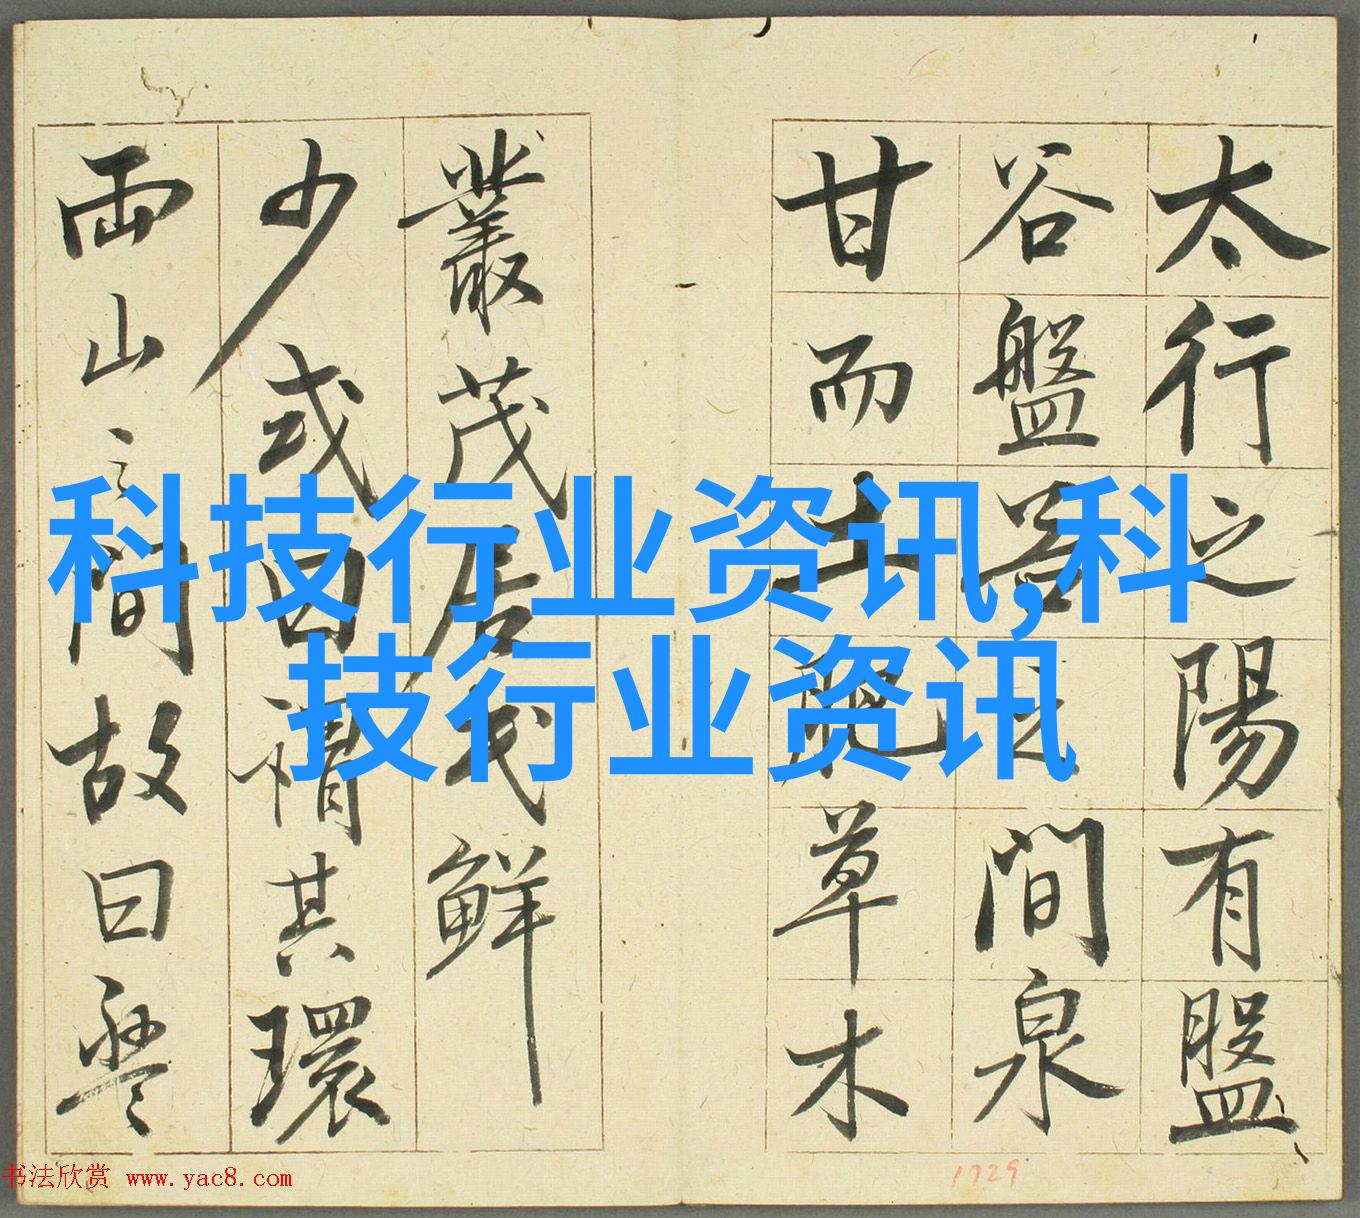 太行之陽有盤
谷盤谷之間泉
甘而土肥草木
叢茂居民鮮
少或曰謂其環
兩山之間故曰盤
科技行业资讯,科
技行业资讯
书法欣赏 www.yac8.com
1729